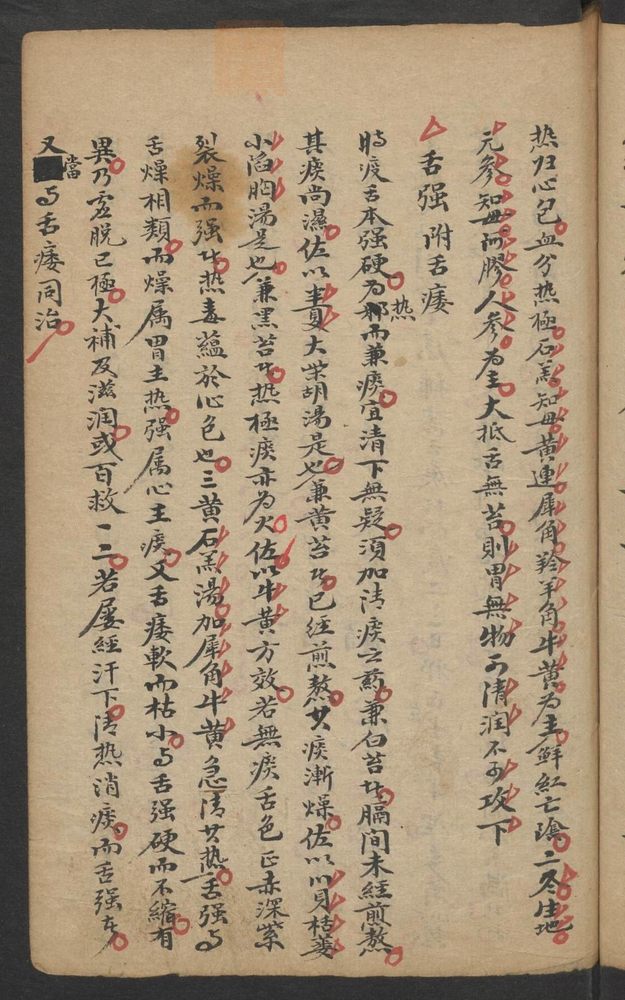 热归心包血分热極石羔知母黄連犀角羚羊角牛黄为主鮮紅亡陰二冬生地
元参知母阿膠人参为主大抵舌無苔則胃無物可清润不可攻下
舌强附舌痿
時疫舌本强硬为热邪而兼痰宜清下無疑須加清痰之药兼白苔者膈間未經煎熬
其痰尚濕佐以半夏大柴胡湯是也兼黄苔者已经煎熬其痰漸燥佐以川貝栝蔞
小陷胸湯是也兼黑苔者热極痰亦为火佐以牛黄方效若無痰舌色正赤深紫
裂燥而强者热毒蘊於心包也三黄石羔湯加犀角牛黄急清其热舌强与
舌燥相類而燥属胃主热强属心主痰又舌痿軟而枯小与舌强硬而不縮有
異乃虚脱已極大補及滋润或百救一二若屢經汗下清热消痰而舌强者
又當与舌痿同治